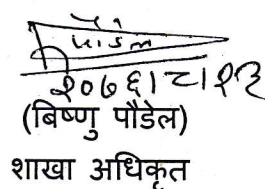 पौडेल
२०७६।८।१३
(बिष्णु पौडेल)
शाखा अधिकृत